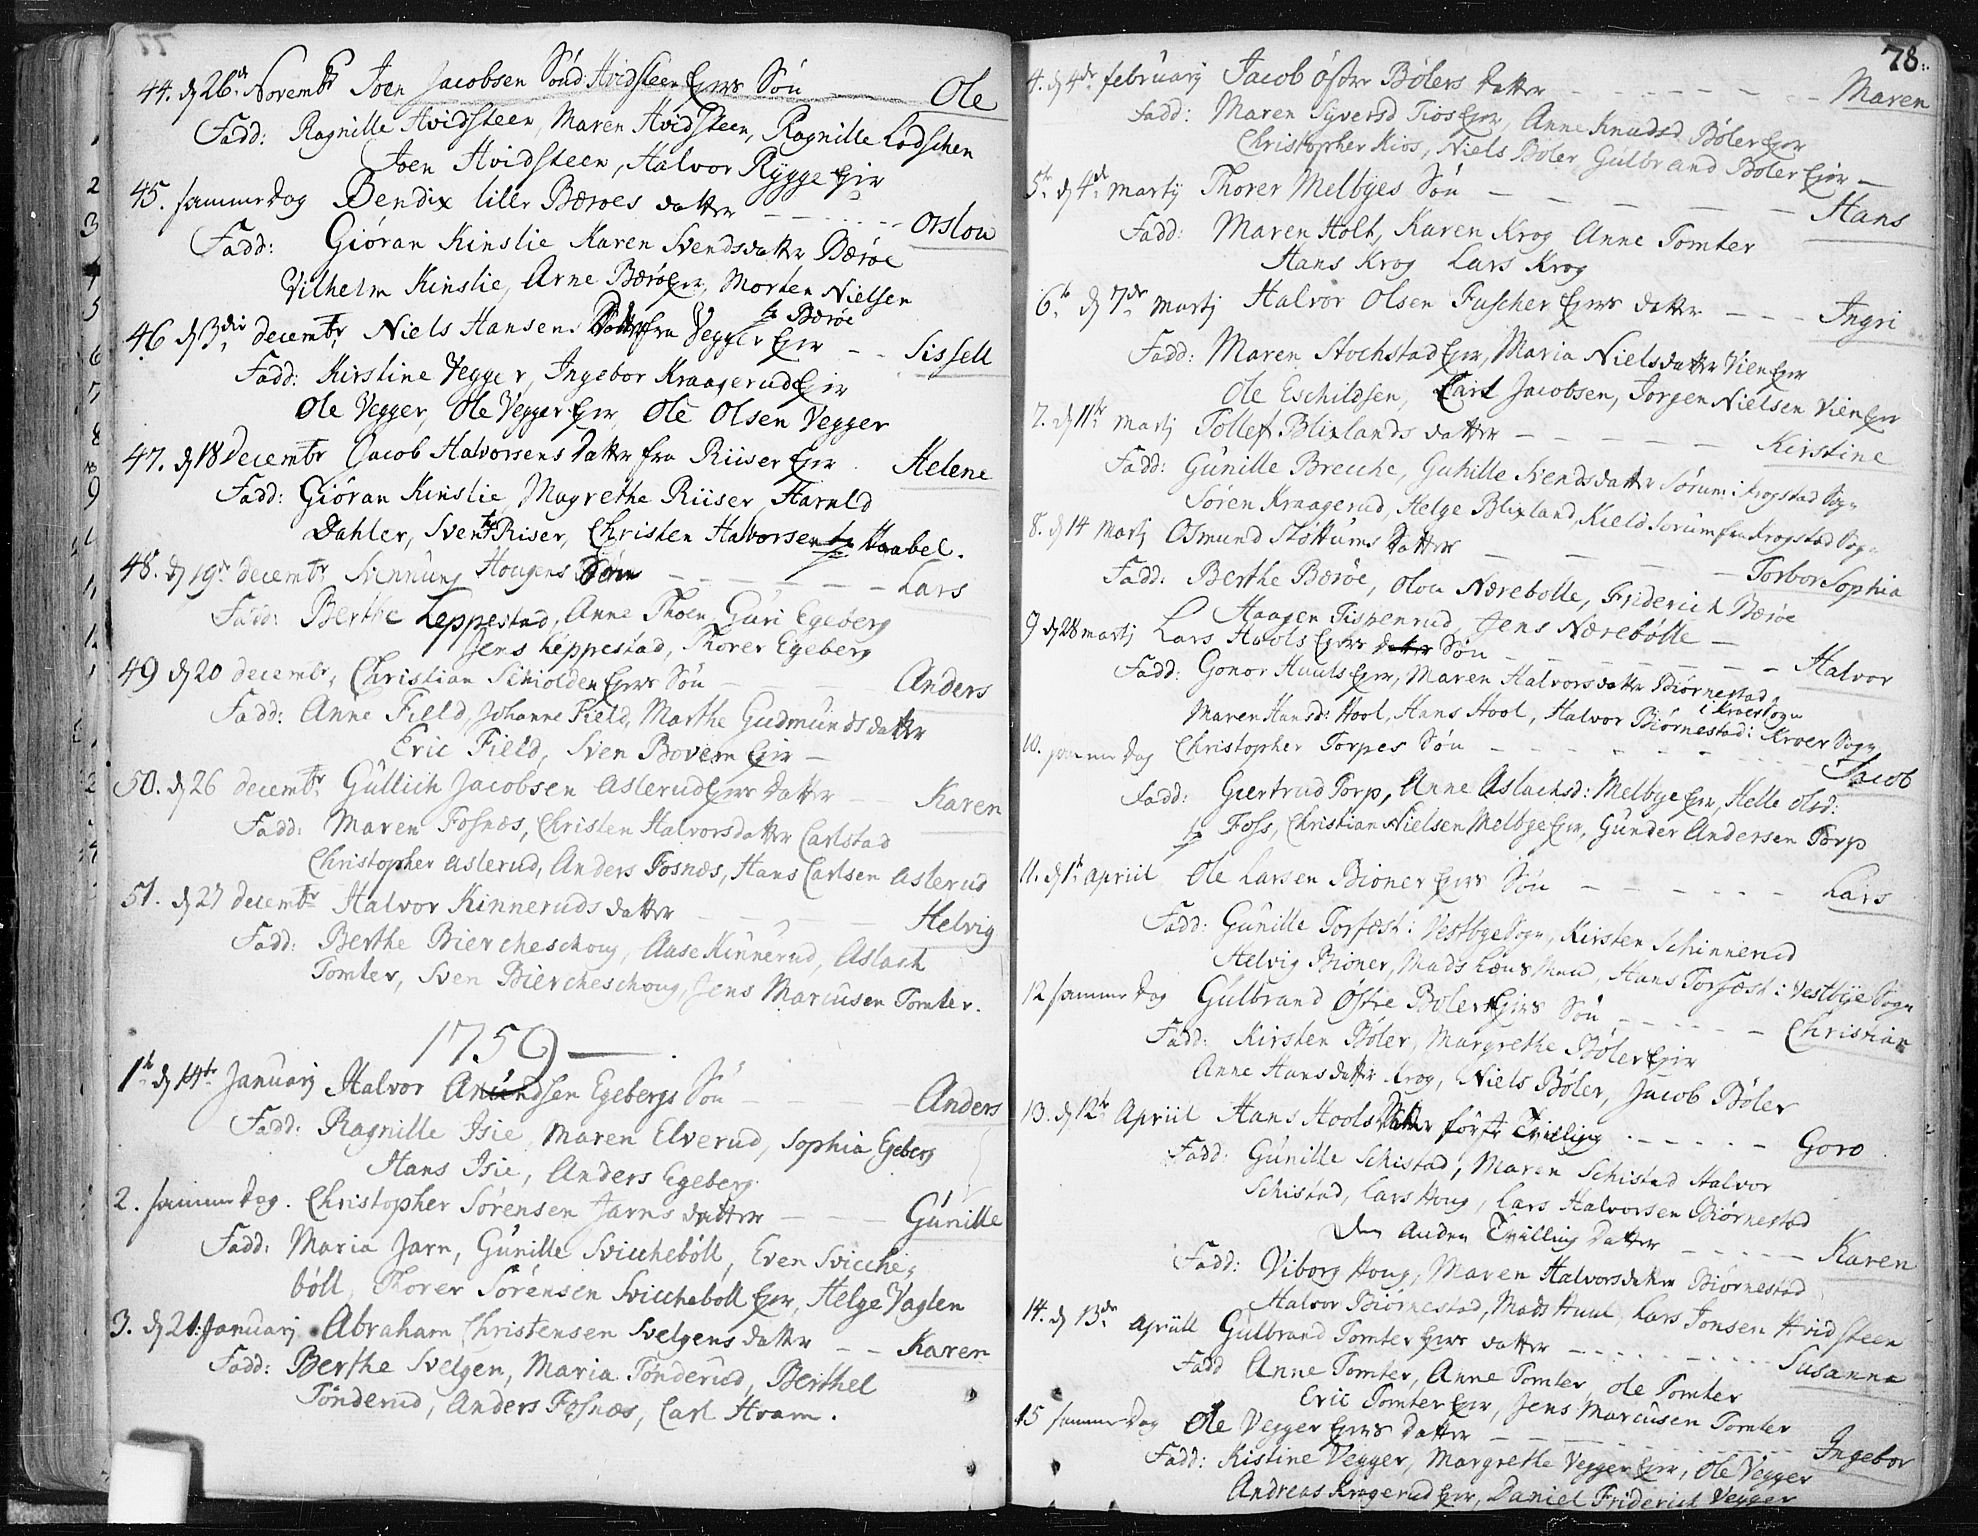 77
44. d 26de Novembr Joen Jacobsen Sönd: Hvidsteen Ejers Sön — Ole
Fadd: Ragnille Hvidsteen, Maren Hvidsteen, Ragnille Lodschen
Joen Hvidsteen, Halvor Rygge Ejer
45. samme Dag Bendix lille Bæroes datter — Orslou
Fadd: Giöran Kinslie Karen Svendsdatter Bæröe
Vilhelm Kinslie, Arne Bæröe Ejer, Morten Nielsen
fr Bæröe
46 d 3die decembr Niels Hansens Datter fra Vegger Ejer — Sissell
Fadd: Kirstine Vegger, Ingebor Kraagerud Ejer
Ole Vegger, Ole Vegger Ejer, Ole Olsen Vegger
47. d 18 Decembr Jacob Halvorsens Datter fra Riiser Ejer. Helene
Fadd: Giöran Kinslie, Magrethe Riiser, Harald
Dahler, Svend Riser, Christen Halvorsen fr Haabel.
48. d 19de decembr Svennung Hougens Sön — Lars
Fadd: Berthe Leppestad, Anne Thoen Guri Egeberg
Jens Leppestad, Thorer Egeberg
49 d 20 decembr, Christian Schiolden Ejers Sön — Anders
Fadd: Anne Field, Johanne Field, Marthe Gudmundsdatter
Eric Field, Sven Bovem Ejer —
50. d 26 decembr Gullich Jacobsen Aslerud Ejers Datter — Karen
Fadd: Maren Fosnæs, Christen Halvorsdatter Carlstad
Christopher Aslerud, Anders Fosnæs, Hans Carlsen Aslerud
51. d 27 decembr Halvor Kinneruds datter — Helvig
Fadd: Berthe Biercheschoug, Aase Kinnerud, Aslach
Tomter, Sven Biercheschoug, Jens Marcusen Tomter.
1759 —
1te d 14te Januarij Halvor Amundsen Egebergs Sön — Anders
Fadd: Ragnille Isie, Maren Elverud, Sophia Egeberg
Hans Isie, Anders Egeberg.
2. samme Dag. Christopher Sörensen Jarns datter — Gunille
Fadd: Maria Jarn, Gunille Svicheböll, Even Svicche-
böll, Thorer Sörensen Svicheböll Ejer, Helge Vaglen
3. d 21: Januarij Abraham Christensen Svelgens datter — Karen
Fadd: Berthe Svelgen, Maria Tönderud, Berthel
Tönderud, Anders Fosnæs, Carl Hvam.
78.
4. d 4de februarij Jacob östre Bölers datter — Maren
Fadd: Maren Syversd Kios Ejer, Anne Knudsd Böler Ejer
Christopher Kios, Niels Böler, Gulbrand Böler Ejer —
5te d 4de Martij Thorer Melbyes Sön — Hans
Fadd: Maren Holt, Karen Krog Anne Tomter
Hans Krog Lars Krog
6te d 7de Martij Halvor Olsen Fuscher Ejers datter — Ingri
Fadd: Maren Stochstad Ejer, Maria Nielsdatter Vien Ejer
Ole Eschildsen, Carl Jacobsen, Jörgen Nielsen Vien Ejer
7. d 11te Martij Tollef Blixlands datter — Kirstine
Fadd: Gunille Brecche, Gunille Svendsdatter Sörum i Krogstad Sogn
Sören Kraagerud, Helge Blixland, Kield Sorum fra Krogstad Sogn
8. d 14 Martij Osmund Stöttums Datter — Torbor Sophia
Fadd: Berthe Bæröe, Olou Nærebolle, Friderich Bæröe
Haagen Tispenrud, Jens Nærebölle —
9 d 28 Martij Lars Huuls Ejers Sön — Halvor
Fadd: Gonor Huuls Ejer, Maren Halvorsdatter Biörnestad
i Kroer Sogn
Maren Hansd: Hool, Hans Hool, Halvor Biörnestad i Kroer Sogn
10. samme Dag Christopher Torpes Sön — Jacob
Fadd: Giertrud Torp, Anne Aslachsd: Melbye Ejer, Helle Olsd:
fr Foss, Christian Nielsen Melbye Ejer, Gunder Andersen Torp
11. d 1te Apriil Ole Larsen Bioner Ejers Sön — Lars
Fadd: Gunille Torfæst i Vestbye Sogn, Kirsten Schinnerud
Helvig Bioner, Mads Huul, Hans Torfæst i Vestbye Sogn
12 samme Dag Gulbrand Östre Böler Ejers Sön — Christian
Fadd: Kirsten Böler, Margrethe Böler Ejer
Anne Hansdatter Krog, Niels Böler, Jacob Böler
13. d 12te Apriil Hans Hools Datter förste Tvilling — Goro
Fadd: Gunille Schistad, Maren Schistad Halvor
Schistad, Lars Houg, Lars Halvorsen Biörnestad
Den Anden Tvilling Datter — Karen
Fadd: Viborg Houg, Maren Halvorsdatter Biörnestad
Halvor Biörnestad, Mads Huul, Lars Jonsen Hvidsteen
14. d 13de Apriil Gulbrand Tomter Ejers datter — Susanna
Fadd Anne Tomter, Anne Tomter, Ole Tomter
Eric Tomter Ejer, Jens Marcusen Tomter
15 samme Dag Ole Vegger Ejers datter — Ingebor
Fadd: Kistine Vegger, Margrethe Vegger Ejer, Ole Vegger
Andreas Kragerud Ejer, Daniel Friderich Vegger